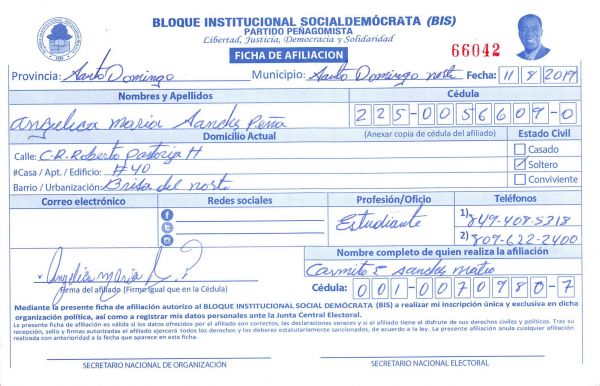 BLOQUE INSTITUCIONAL SOCIALDEMÓCRATA (BIS)
PARTIDO PEÑAGOMISTA
Libertad, Justicia, Democracia y Solidaridad
FICHA DE AFILIACION
66042
Provincia: Santo Domingo Municipio: Santo Domingo norte Fecha: 11/8/2019
Nombres y Apellidos Cédula
Angelica Maria Sanchez Peña 225-0056609-0
Domicilio Actual (Anexar copia de cédula del afiliado) Estado Civil
Calle: C-R-Roberto Pastoriza H Casado
#Casa / Apt. / Edificio: #40 Soltero
Barrio / Urbanización: Brisa del norte Conviviente
Correo electrónico Redes sociales Profesión/Oficio Teléfonos
Estudiante 1) 849-408-5318
2) 809-622-2400
Nombre completo de quien realiza la afiliación
Angelica Maria S. P. Carmito E Sanchez Mateo
Firma del afiliado (Firma igual que en la Cédula) Cédula: 001-0070980-7
Mediante la presente ficha de afiliación autorizo al BLOQUE INSTITUCIONAL SOCIAL DEMÓCRATA (BIS) a realizar mi inscripción única y exclusiva en dicha
organización política, así como a registrar mis datos personales ante la Junta Central Electoral.
La presente ficha de afiliación es válida si los datos ofrecidos por el afiliado son correctos, las declaraciones veraces y si el afiliado tiene el disfrute de sus derechos civiles y políticos. Tras su
recepción, sello y firmas autorizadas el afiliado ejercerá todos los derechos y los deberes estatutariamente sancionados, de acuerdo a la ley. La presente afiliación anula cualquier afiliación
realizada con anterioridad a la fecha que aparece en esta ficha.
SECRETARIO NACIONAL DE ORGANIZACIÓN SECRETARIO NACIONAL ELECTORAL